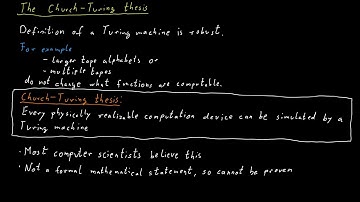 The Church-Turing thesis
Definition of a Turing machine is robust.
For example
- larger tape alphabets or
- multiple tapes
do not change what functions are computable.
Church-Turing thesis:
Every physically realizable computation device can be simulated by a
Turing machine
· Most computer scientists believe this
· Not a formal mathematical statement, so cannot be proven